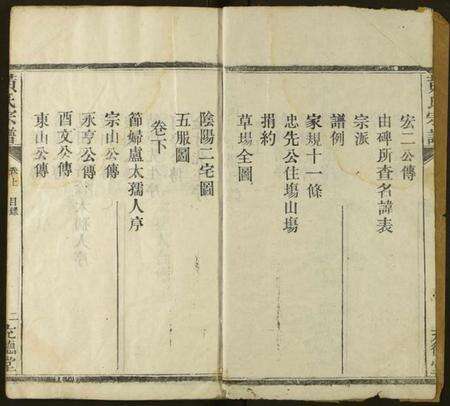 黃氏宗譜
宏二公傳
由碑所查名諱表
宗派
譜例
家規十一條
忠先公住塲山塲
捐約
草塲全圖
陰陽二宅圖
五服圖
卷下
節婦盧太孺人序
宗山公傳
永亨公傳
酉文公傳
東山公傳
黃氏宗譜
卷上
目錄
二